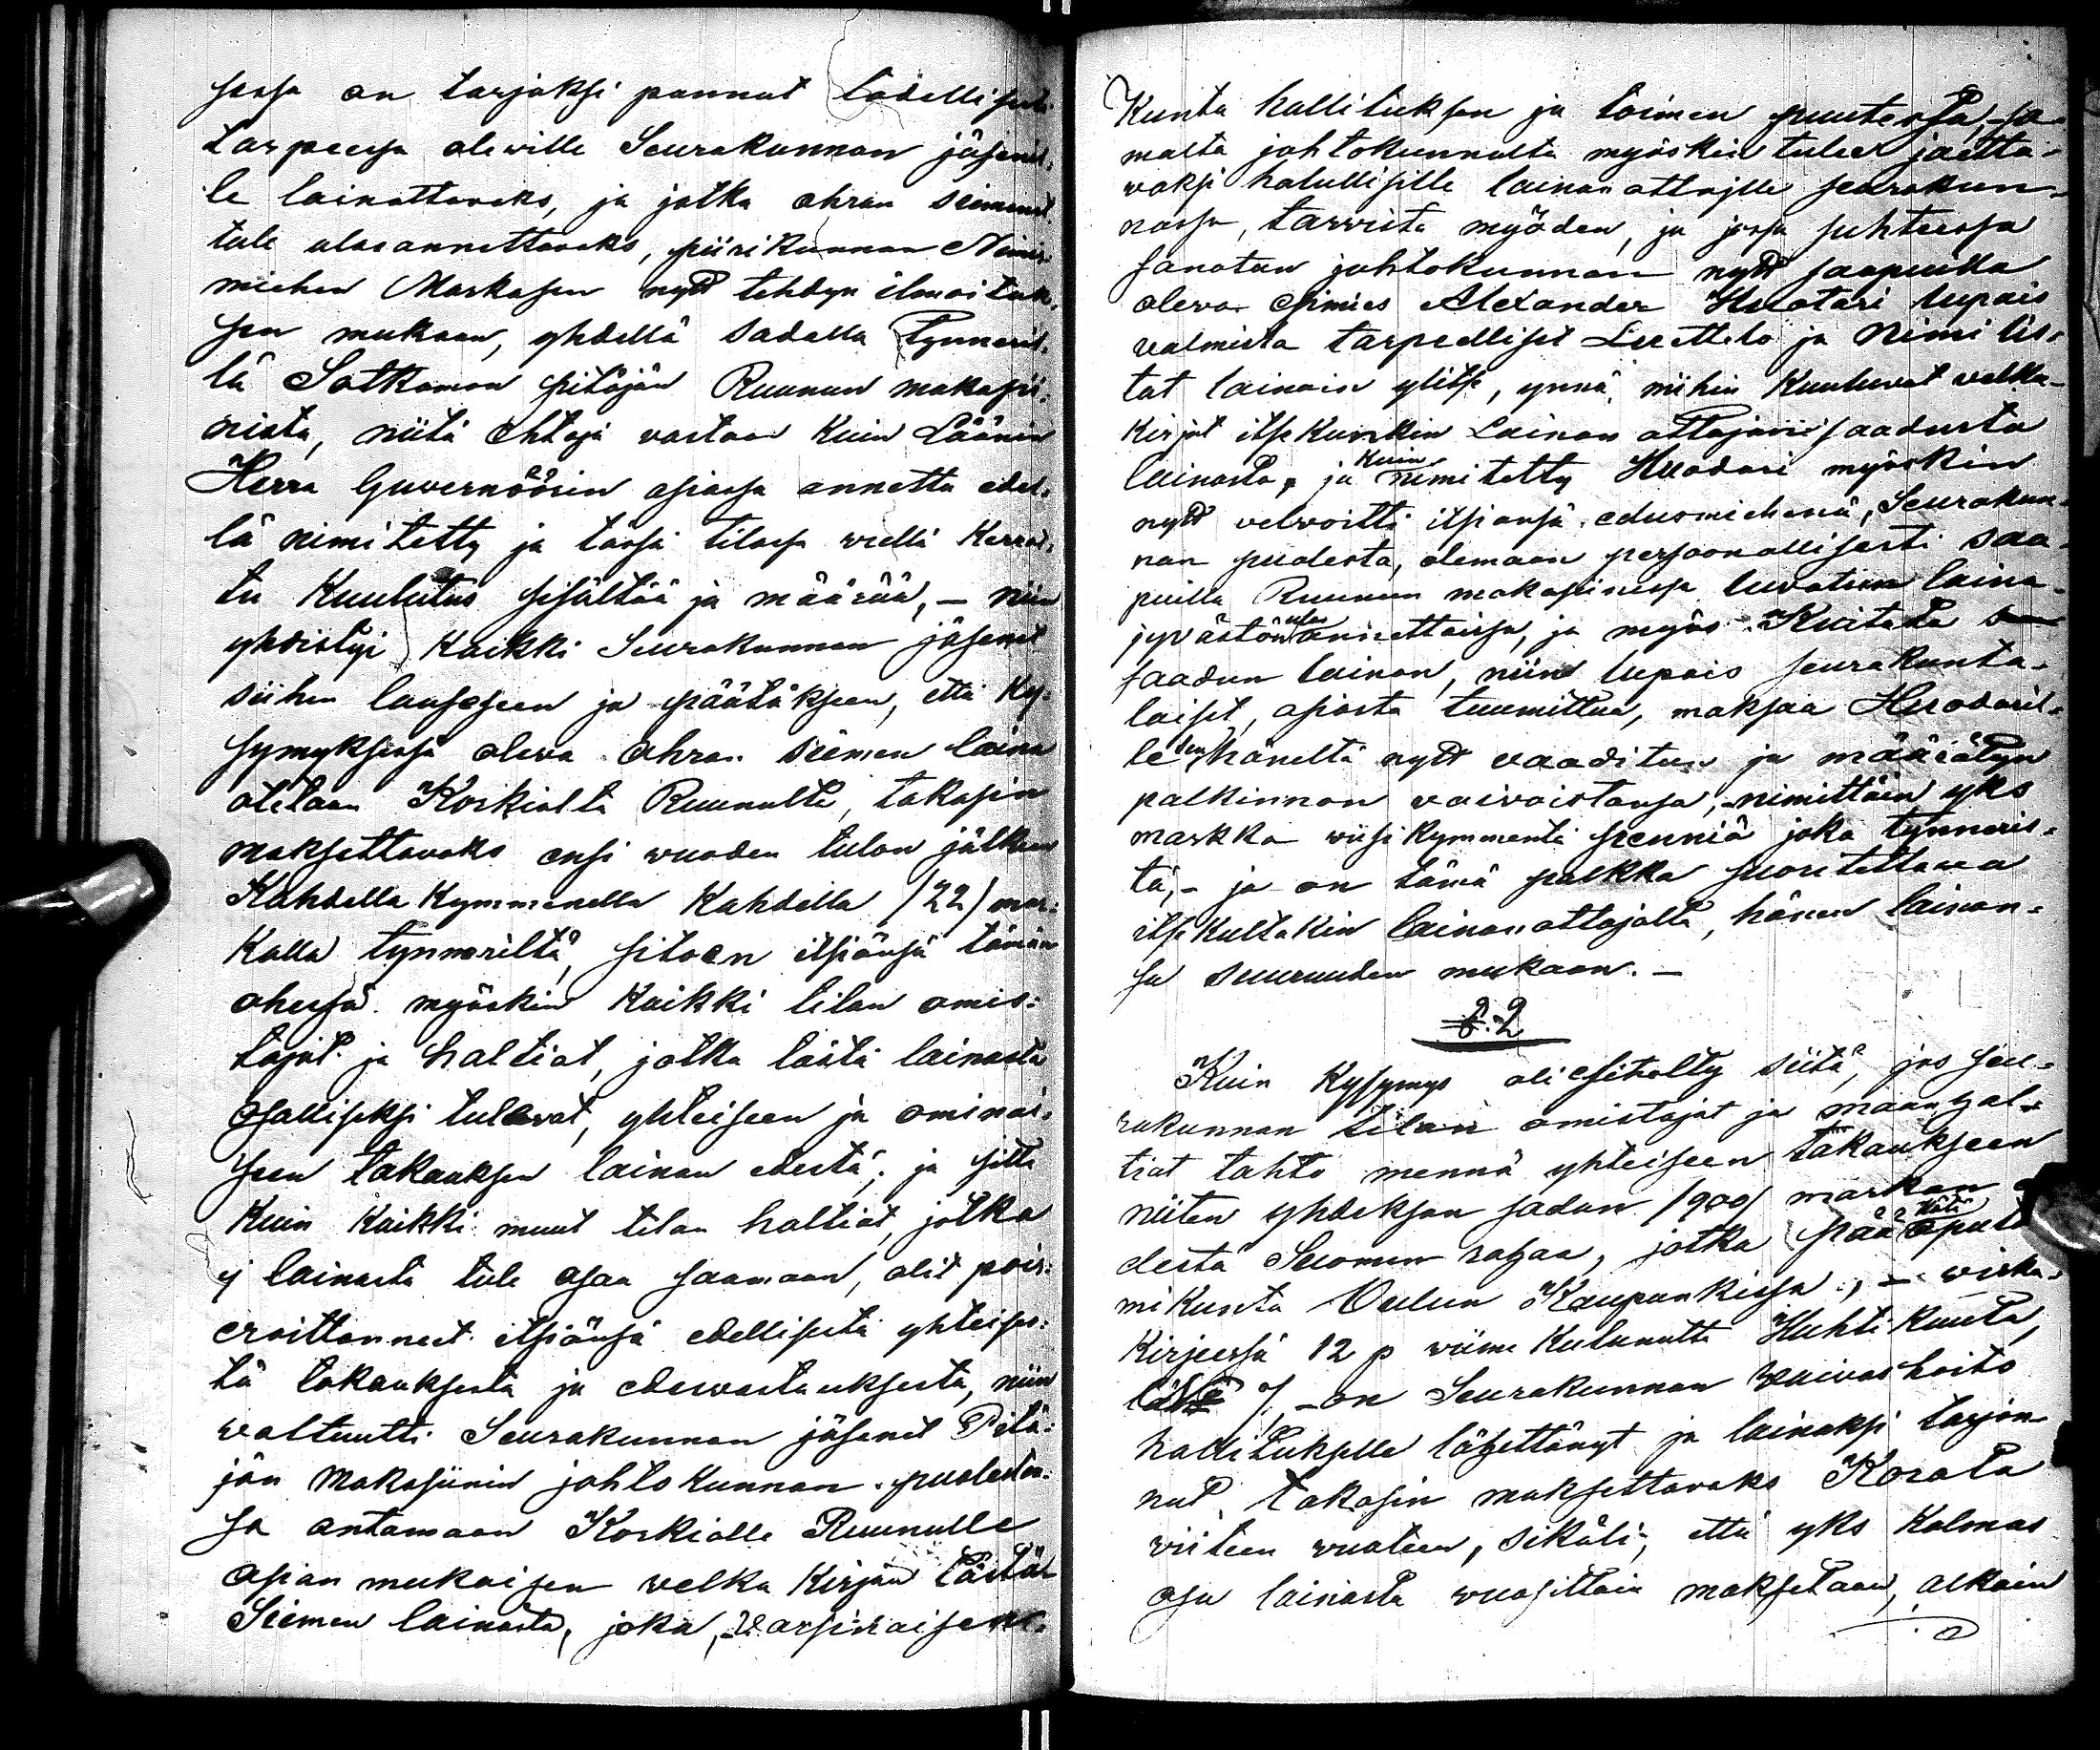 sessa on tarjoksi pannut todellisesti
tarpeessa oleville Seurakunnan jäsenil-
le lainattavaks, ja jotka ohran siemenet
tule ulosannettavaks, piirikunnan Nimis-
miehen Markasen nytt tehdyn ilmoituk-
sen mukaan, yhdellä sadalla Tynneril-
lä Sotkamon pitäjän Ruunun makasii-
nista, niitä ehtoja vastaan kuin Läänin
Herra Guvernöörin asiassa annettu edel-
lä nimitetty ja tässä tilassa wiellä kerrot-
tu Kuulutus sisältää ja määrää, – niin
yhdistyi kaikki Seurakunnan jäsenet
siihen lauseseen ja päätökseen, että ky-
symyksessä oleva ohran siemen laina
otetaan Korkialta Ruunulta, takasin
maksettavaks ensi wuoden tulon jälkeen
Kahdella kymmenellä kahdella /22/ mar-
kalla tynneriltä, sitoen itsiänsä tämän
ohessa myöskin kaikki tilan omis-
tajat ja haltiat, jotka tästä lainasta
osalliseksi tulevat, yhteiseen ja ominai-
seen takauksen lainan edestä; ja sitte
kuin kaikki muut tilan haltiat, jotka
ej lainasta tule osaa saamaan, olit pois-
eroittanneet itsiänsä edellisestä yhteises-
tä takauksesta ja edeswastauksesta, niin
waltuutti Seurakunnan jäsenet Pitä-
jän Makasiinin johtokunnan puolestan-
sa antamaan Korkialle Ruunulle
asian mukaisen welka kirjan tästä
Siemen lainasta, joka, varsinaisen
Kunta hallituksen ja toimen puuteessa, sa-
malta johtokunnalta myöskin tulee jaetta-
waksi halullisille lainan ottajille seurakun-
nassa, tarvista myöden, ja jossa suhteessa
sanotun johtokunnan nytt saapuilla
oleva Esimies Alexander Huotari lupais
valmista tarpeelliset Luettelo ja Nimi lis-
tat lainain ylitse, ynnä niihin kuuluwat velka-
kirjat itsekunkin Lainan ottajani saadusta
lainasta, ja kuin nimitetty Huodari myöskin
nytt velvoitti itsiänsä edusmiehenä, Seurakun-
nan puolesta, olemaan persoonallisesti saa-
puilla Ruunun makasiinissa luvatun laina-
jyvästön ulos annettaissa, ja myös Kuitata
saadun lainan, niin lupais seurakunta-
laiset, asiasta tuumittua, maksaa Huodaril-
le sen häneltä nytt vaaditun ja määrätyn
palkinnon vaivoistansa, nimittäin yks
markka wiisikymmentä penniä joka tynneris-
tä, – ja on tämä palkka suoritettava
itsekultakin lainan ottajalta, hänen lainan-
sa suuruuden mukaan. –
§. 2
Kuin kysymys oli esitelty siitä, jos seu-
rakunnan tilan omistajat ja maan hal-
tiat tahto mennä yhteiseen takaukseen
niiten yhdeksän sadan /900/ markan e-
destä Suomen rahaa, jotka pää hätä aputoi-
mikunta Oulun Kaupunkissa, – wirka-
kirjeessä 12 p wiime kulunutta Huhtikuuta,
– on Seurakunnan vaivashoito
hallitukselle lähettänyt ja lainaksi tarjon-
nut, takasin maksettavaks Korota
viiteen wuoteen, sikäli, että yks kolmas
osa lainasta wuosittain maksetaan, alkain